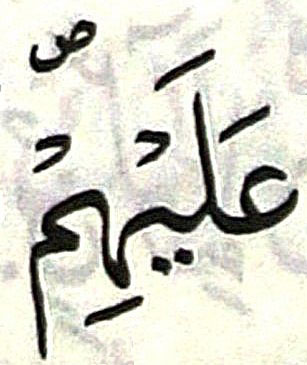 عَلَيْهِمْ ص